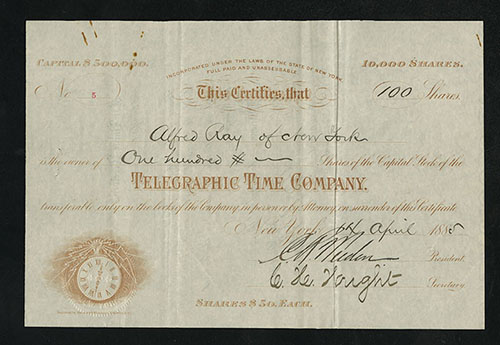 CAPITAL $500,000.
10,000 SHARES.
INCORPORATED UNDER THE LAWS OF THE STATE OF NEW YORK.
FULL PAID AND UNASSESSABLE.
No 5
This Certifies, that
100 Shares
Alfred Ray of New York
is the owner of One hundred Shares of the Capital Stock of the
TELEGRAPHIC TIME COMPANY.
transferable only on the books of the Company, in person or by Attorney, on surrender of this Certificate
New York April 188
President
Secretary
SHARES $50. EACH.